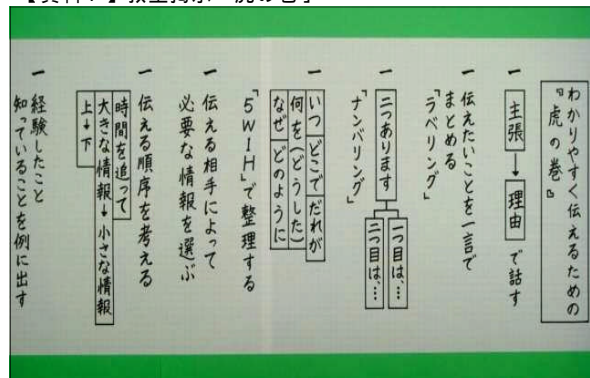 わかりやすく伝えるための
『虎の巻』
一 主張→理由で話す
一 伝えたいことを一言で
まとめる
「ラベリング」
一 二つあります
一つ目は、…
二つ目は、…
「ナンバリング」
一 いつ どこで だれが
何を(どうした)
なぜ どのように
「5W1H」で整理する
一 伝える相手によって
必要な情報を選ぶ
一 伝える順序を考える
時間を追って
大きな情報→小さな情報
上→下
一 経験したこと
知っていることを例に出す